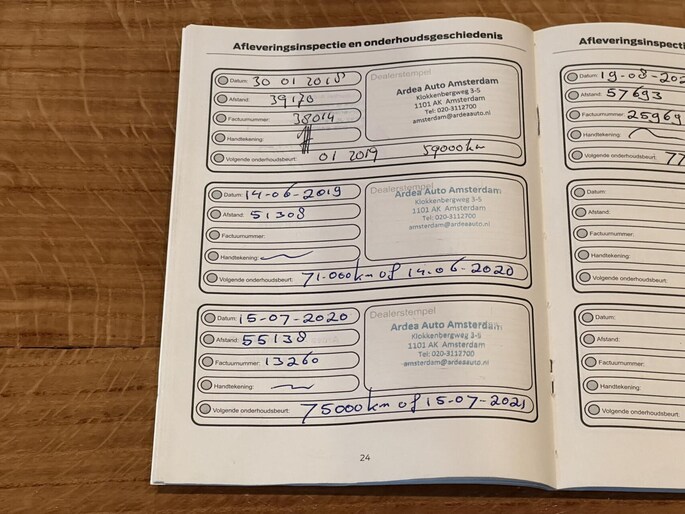 Afleveringsinspectie en onderhoudsgeschiedenis
Datum: 30 01 2018
Afstand: 39170
Factuurnummer: 38014
Handtekening:
Volgende onderhoudsbeurt: 01 2019 59000km
Dealerstempel
Ardea Auto Amsterdam
Klokkenbergweg 3-5
1101 AK Amsterdam
Tel: 020-3112700
amsterdam@ardeaauto.nl
Datum: 14-06-2019
Afstand: 51308
Factuurnummer:
Handtekening:
Volgende onderhoudsbeurt: 71.000km of 14-06-2020
Dealerstempel
Ardea Auto Amsterdam
Klokkenbergweg 3-5
1101 AK Amsterdam
Tel: 020-3112700
amsterdam@ardeaauto.nl
Datum: 15-07-2020
Afstand: 55138
Factuurnummer: 13260
Handtekening:
Volgende onderhoudsbeurt: 75000km of 15-07-2021
Dealerstempel
Ardea Auto Amsterdam
Klokkenbergweg 3-5
1101 AK Amsterdam
Tel: 020-3112700
amsterdam@ardeaauto.nl
24
Afleveringsinspecti
Datum: 19-08-202
Afstand: 57693
Factuurnummer: 25969
Handtekening:
Volgende onderhoudsbeurt: 77
Datum:
Afstand:
Factuurnummer:
Handtekening:
Volgende onderhoudsbeurt:
Datum:
Afstand:
Factuurnummer:
Handtekening:
Volgende onderhoudsbeurt: